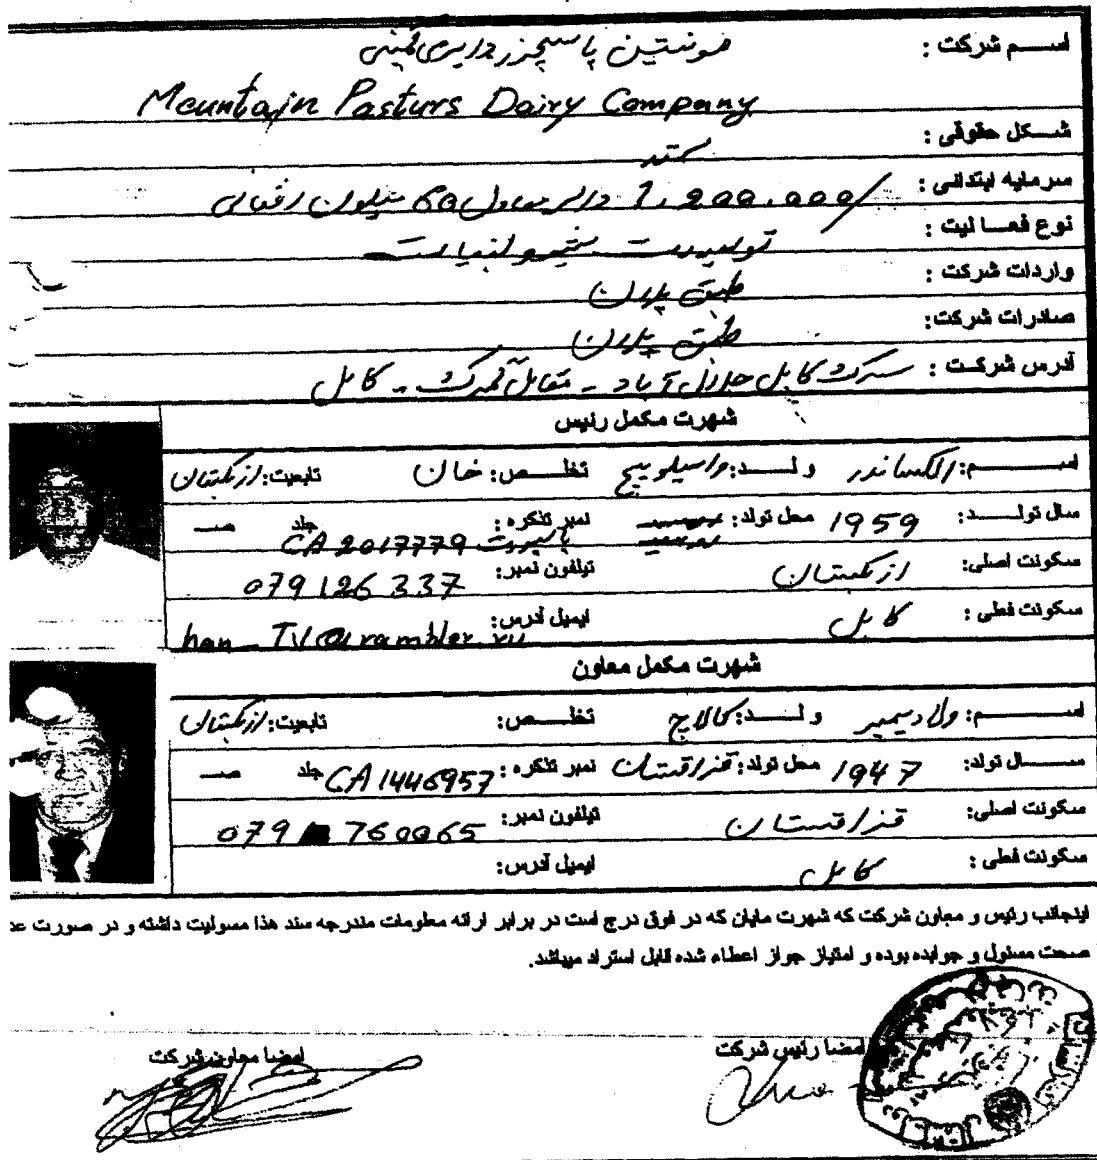 اسم شرکت : مونتین پاسچرز دایری کمپنی
Mountain Pasturs Dairy Company
شکل حقوقی :
سرمایه ابتدائی : 1,200.000/ دالر معادل 60 میلون افغانی
نوع فعالیت : تولید شیر و لبنیات
واردات شرکت : طبق پلان
صادرات شرکت: طبق پلان
آدرس شرکت : سرک کابل جلال آباد - مقابل گمرک - کابل
شهرت مکمل رئیس
اسم: الکساندر ولد: واسیلویچ تخلص: خان تابعیت: ازبکستان
سال تولد: 1959 محل تولد: نمبر تذکره : پاسپورت CA 2017779 جلد صـ
سکونت اصلی: ازبکستان تیلفون نمبر: 079 126 337
سکونت فعلی : کابل ایمیل آدرس: han_TV@rambler.ru
شهرت مکمل معاون
اسم: ولادیمیر ولد: کالاج تخلص: تابعیت: ازبکستان
سال تولد: 1947 محل تولد: قزاقستان نمبر تذکره : CA 1446957 جلد صـ
سکونت اصلی: قزاقستان تیلفون نمبر: 079 760065
سکونت فعلی : کابل ایمیل آدرس:
اینجانب رئیس و معاون شرکت که شهرت مایان که در فوق درج است در برابر ارائه معلومات مندرجه سند هذا مسولیت داشته و در صورت عد
صحت مسئول و جوابده بوده و امتیاز جواز اعطاء شده قابل استراد میباشد.
امضا رئیس شرکت امضا معاون شرکت